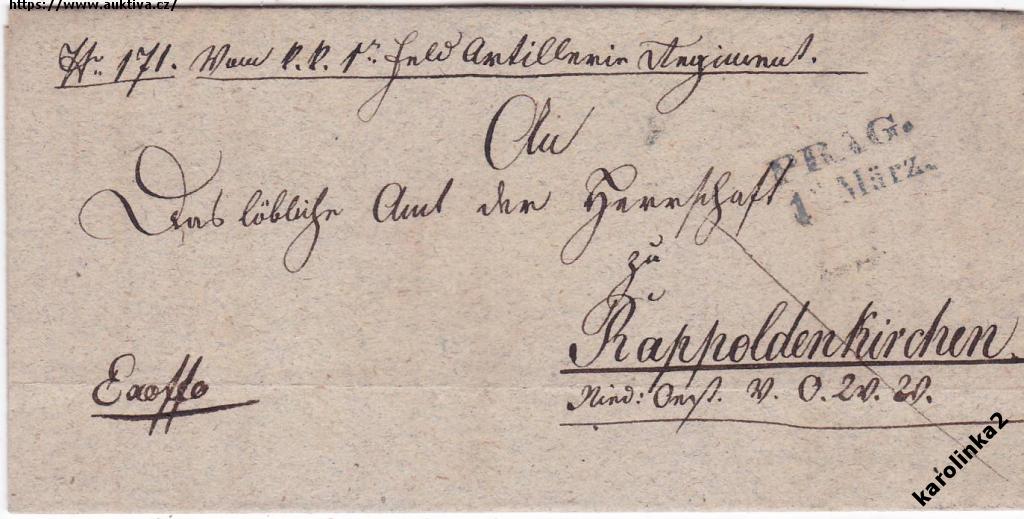 https://www.auktiva.cz/
Nr. 171. Vom k.k. 1n Feld Artillerie Regiment.
An
PRAG.
1 März.
Das löbliche Amt der Herrschaft
zu
Rappoldenkirchen.
Exoffo
Nied: Oest. V. O. W. W.
karolinka2